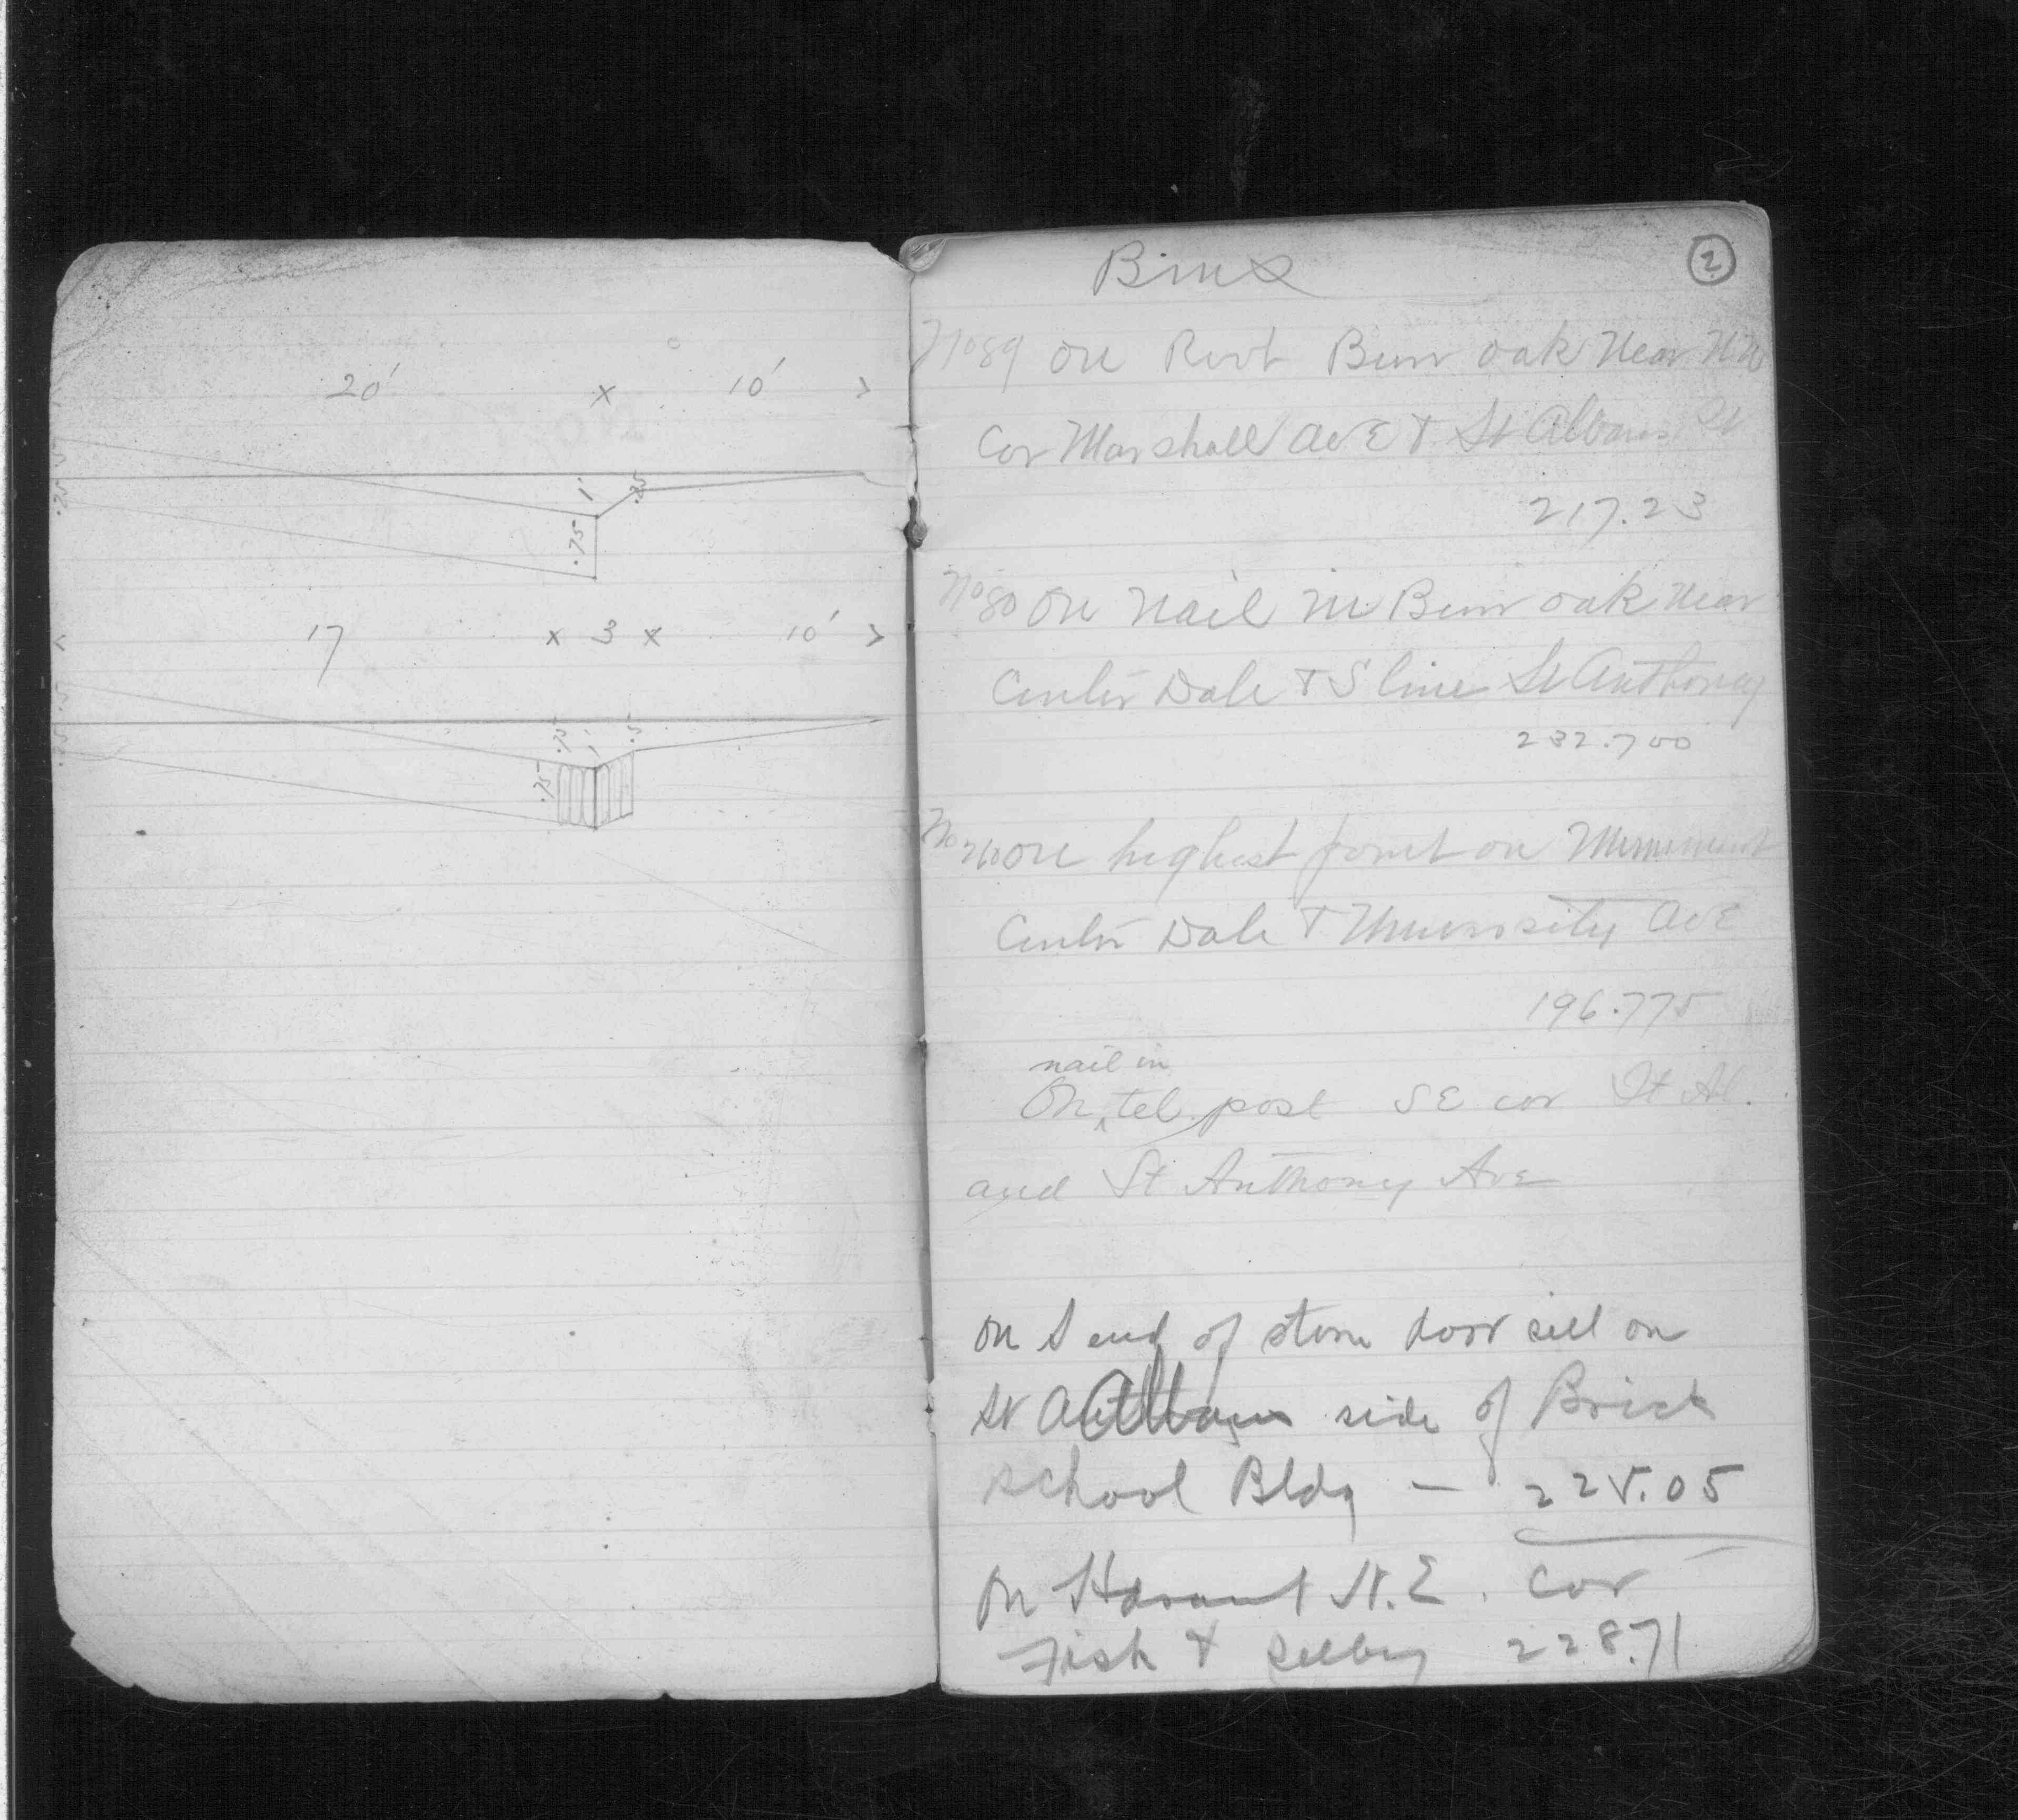 20' x 10'
1' .25
.25
.75
17 x 3 x 10'
.75 1' .5
.75
2
BMs
No 89 on Root Burr oak Near NW
Cor Marshall AvE & St Albans St
217.23
No 80 On Nail in Burr oak Near
Center Dale & S line St Anthony
232.700
No on highest point on Monument
Center Dale & University AvE
196.775
nail in
On ^ tel. post SE cor St Al.
and St Anthony Ave
On S end of stone door sill on
St Albans side of Brick
School Bldg — 225.05
On N.E. Cor
Fisk & Selby 228.71